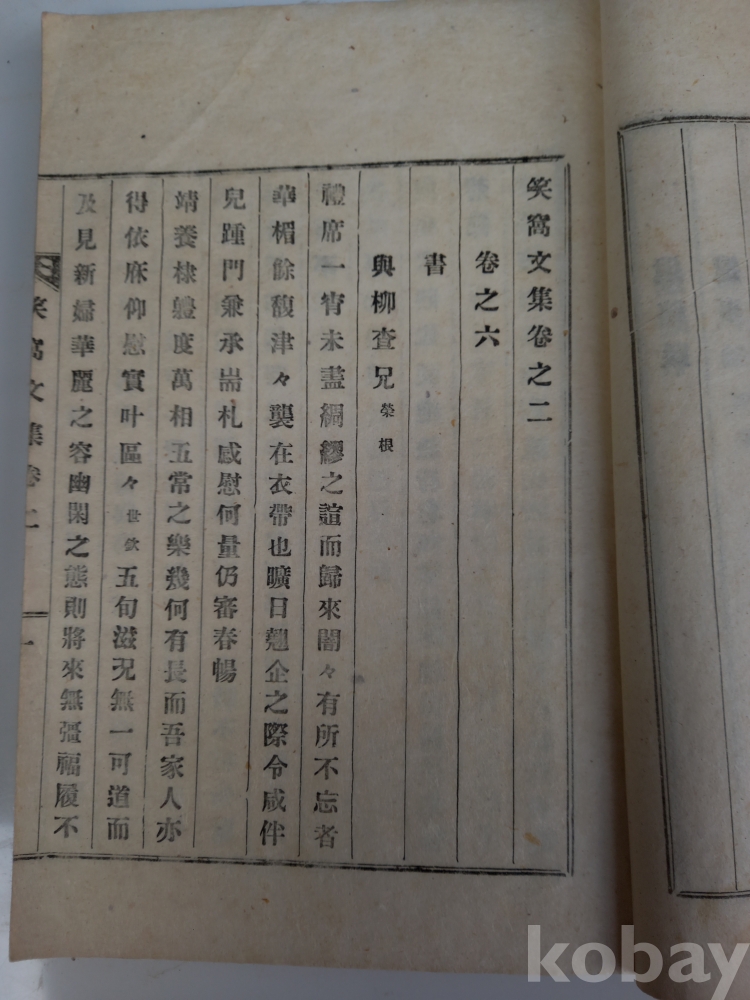 笑窩文集卷之二
卷之六
書
與柳査兄 榮根
禮席一宵未盡綢繆之誼而歸來闇々有所不忘者
華楣餘馥津々襲在衣帶也曠日翹企之際令咸伴
兒踵門兼承耑札感慰何量仍審春暢
靖養棣軆度萬相五常之樂幾何有長而吾家人亦
得依庥仰慰實叶區々世欽五旬滋況無一可道而
及見新婦華麗之容幽閑之態則將來無彊福履不
笑窩文集卷二 一
kobay